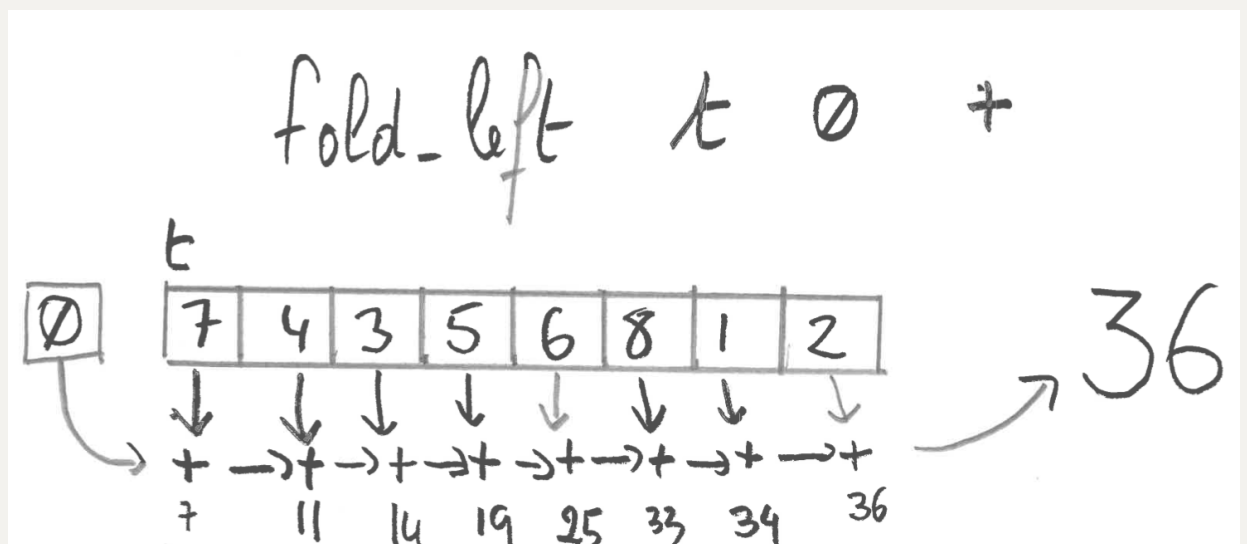 fold_left t 0 +
t
0 7 4 3 5 6 8 1 2
36
+ → + → + → + → + → + → + → +
7 11 14 19 25 33 34 36